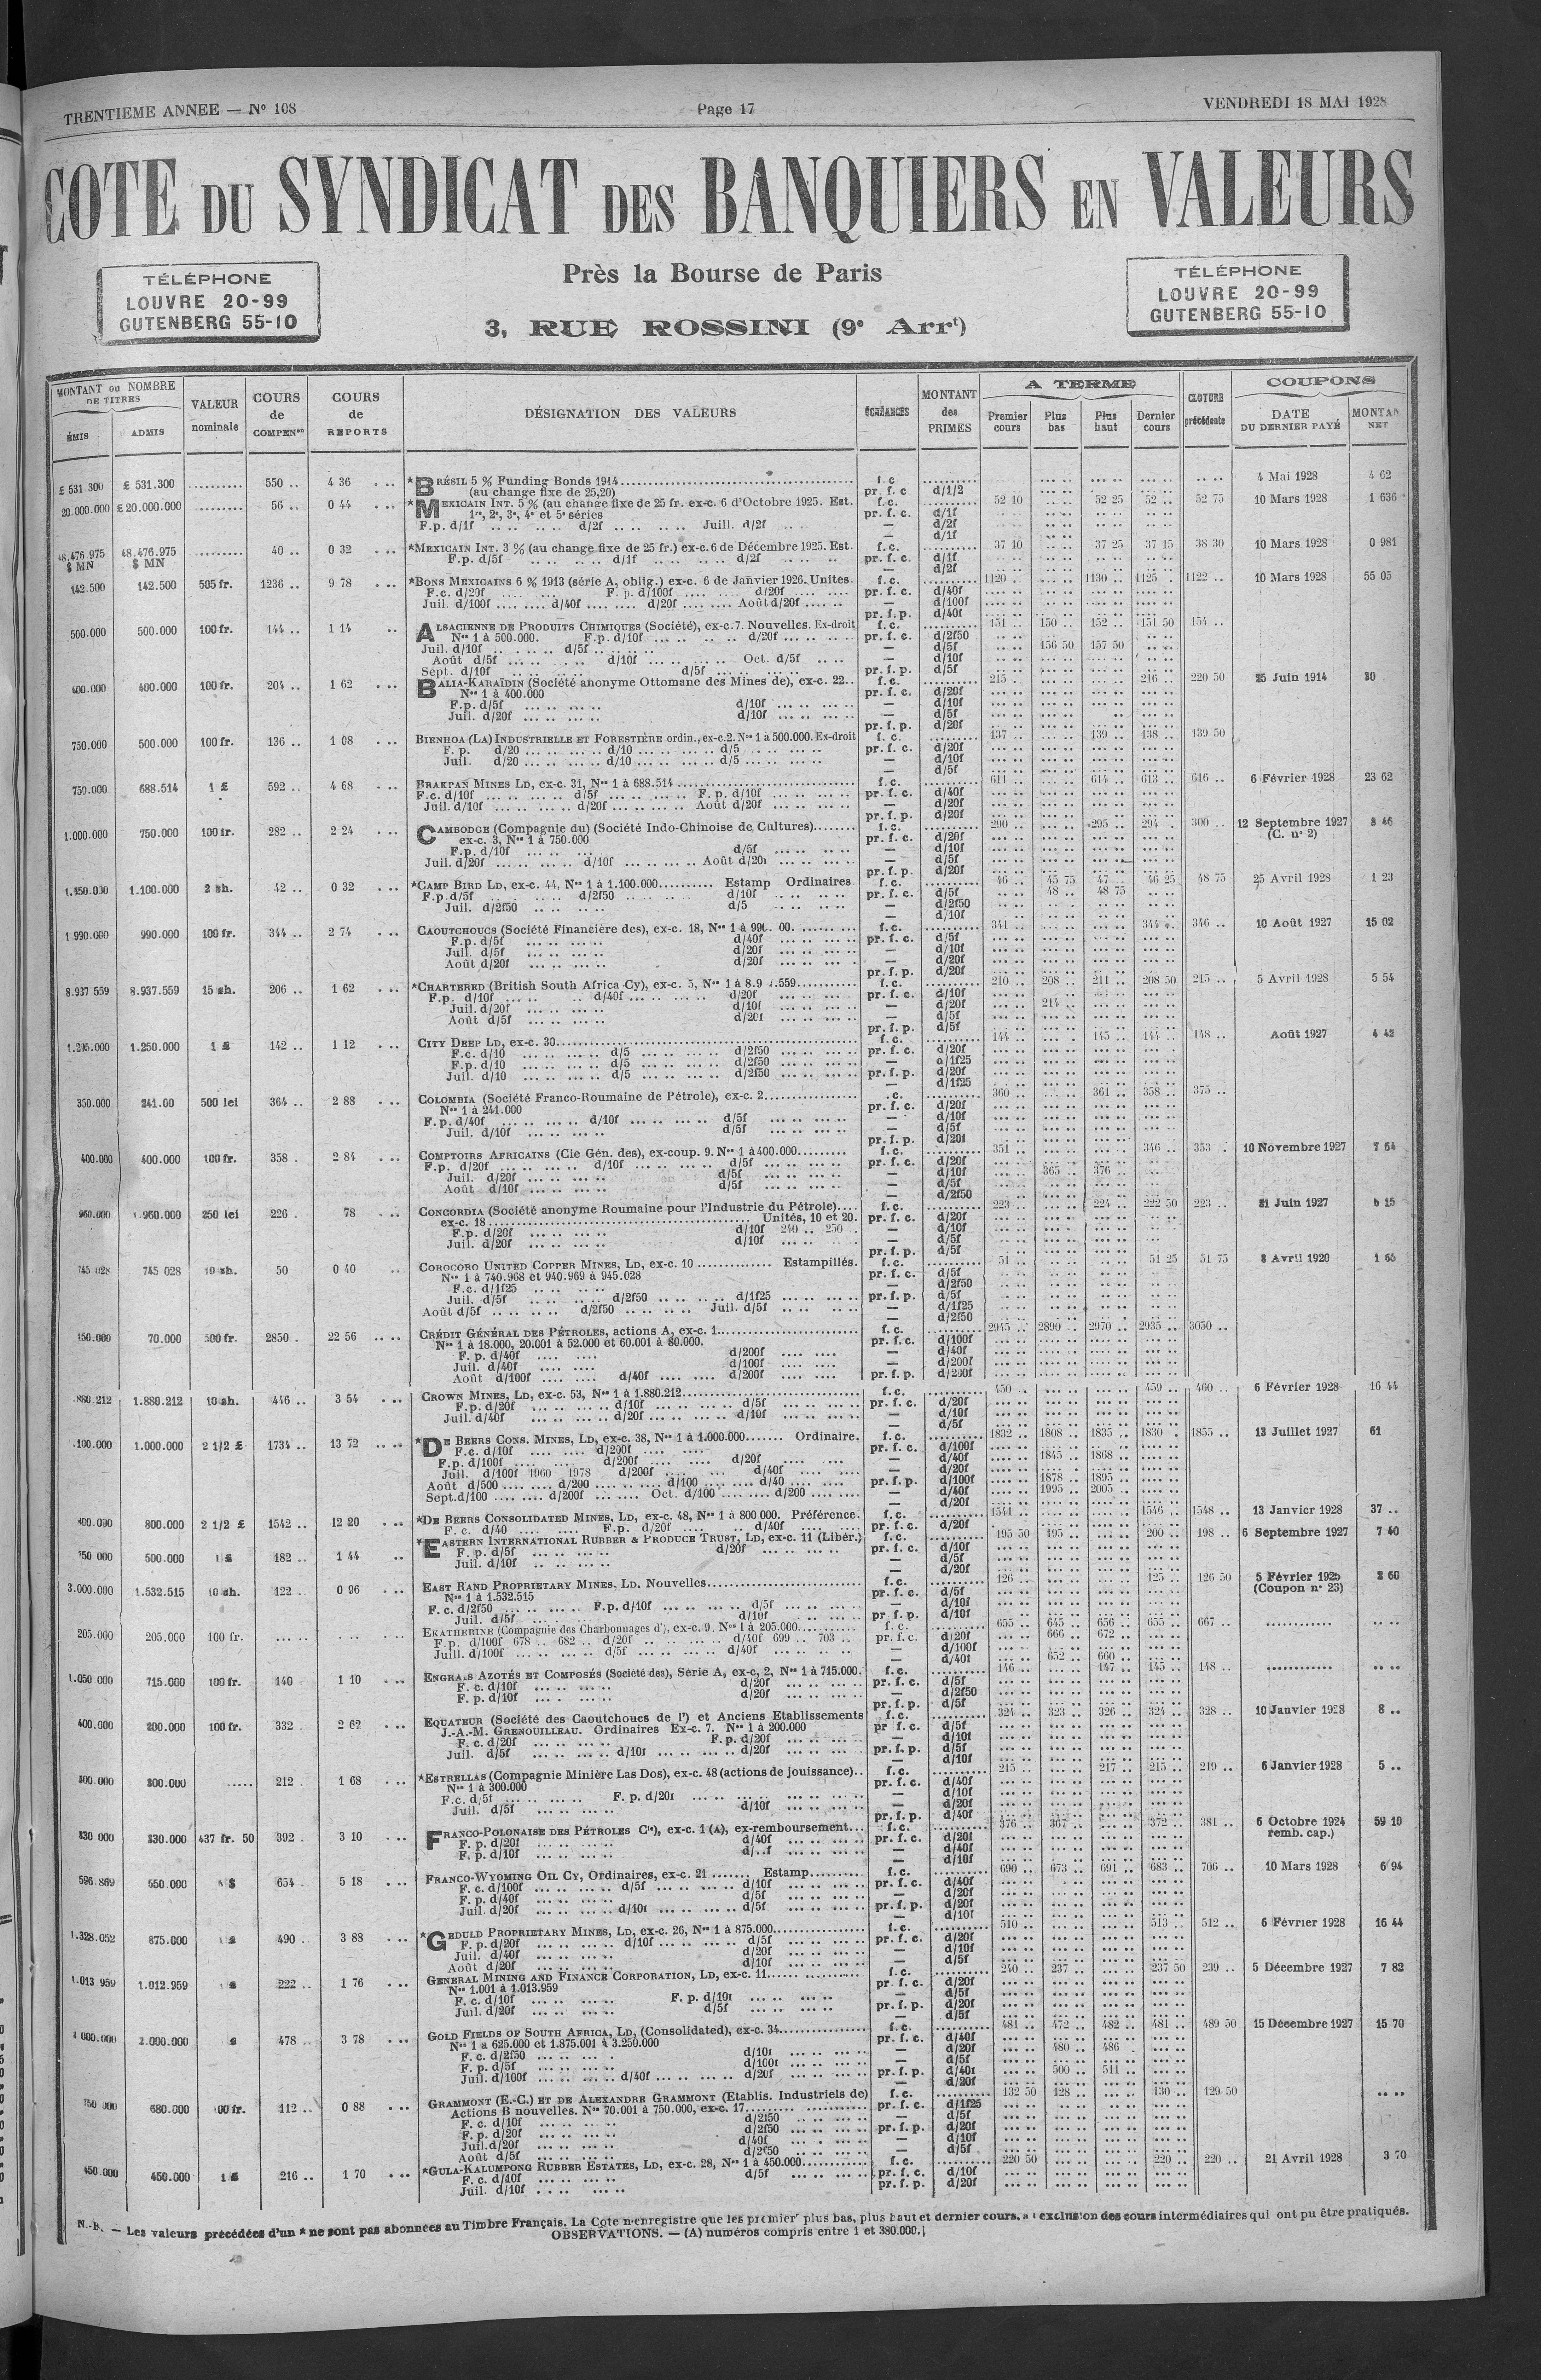 TRENTIEME ANNEE — N° 108
Page 17
VENDREDI 18 MAI 1928
COTE DU SYNDICAT DES BANQUIERS EN VALEURS
Près la Bourse de Paris
3, RUE ROSSINI (9e Arrt)
TÉLÉPHONE
LOUVRE 20-99
GUTENBERG 55-10
TÉLÉPHONE
LOUVRE 20-99
GUTENBERG 55-10
MONTANT ou NOMBRE DE TITRES
ÉMIS ADMIS
VALEUR nominale
COURS de COMPENon
COURS de REPORTS
DÉSIGNATION DES VALEURS
ÉCHÉANCES
MONTANT des PRIMES
A TERME
Premier cours Plus bas Plus haut Dernier cours
CLOTURE précédente
COUPONS
DATE DU DERNIER PAYÉ
NET
£ 531.300 £ 531.300 .......... 550 .. 4 36 *BRÉSIL 5 % Funding Bonds 1914 f.c. 4 Mai 1928 4 62
(au change fixe de 25,20) pr. f. c. d/1/2
20.000.000 £ 20.000.000 .......... 56 .. 0 44 *MEXICAIN INT. 5 % (au change fixe de 25 fr. ex-c. 6 d'Octobre 1925. Est. f.c. 52 10 52 25 52 .. 52 75 10 Mars 1928 1 636
1re, 2e, 3e, 4e et 5e séries pr. f. c. d/1f
F.p. d/1f d/2f Juill. d/2f — d/2f
— d/1f
48.476.975 $ MN 48.476.975 $ MN .......... 40 .. 0 32 *MEXICAIN INT. 3 % (au change fixe de 25 fr.) ex-c. 6 de Décembre 1925. Est. f.c. 37 10 37 25 37 15 38 30 10 Mars 1928 0 981
F.p. d/5f d/1f d/2f pr. f. c. d/1f
— d/2f
142.500 142.500 505 fr. 1236 .. 9 78 *BONS MEXICAINS 6 % 1913 (série A, oblig.) ex-c. 6 de Janvier 1926. Unites. f.c. 1120 .. 1130 .. 1125 . 1122 .. 10 Mars 1928 55 05
F.c. d/20f F. p. d/100f d/20f pr. f. c. d/40f
Juil. d/100f d/40f d/20f Août d/20f — d/100f
pr. f.p. d/40f
500.000 500.000 100 fr. 144 .. 1 14 ALSACIENNE DE PRODUITS CHIMIQUES (Société), ex-c. 7. Nouvelles. Ex-droit f.c. 151 .. 150 .. 152 .. 151 50 154 ..
Nos 1 à 500.000. F.p. d/10f d/20f pr. f. c. d/2f50
Juil. d/10f d/5f — d/5f 156 50 157 50
Août d/5f d/10f Oct. d/5f — d/10f
Sept. d/10f d/5f pr. f. p. d/5f
400.000 400.000 100 fr. 204 .. 1 62 BALIA-KARAÏDIN (Société anonyme Ottomane des Mines de), ex-c. 22.. f.c. 215 . 216 .. 220 50 25 Juin 1914 30
Nos 1 à 400.000 pr. f. c. d/20f
F.p. d/5f d/10f — d/10f
Juil. d/20f d/10f — d/5f
pr. f. p. d/20f
750.000 500.000 100 fr. 136 .. 1 08 BIENHOA (LA) INDUSTRIELLE ET FORESTIÈRE ordin., ex-c.2. Nos 1 à 500.000. Ex-droit f. c. 137 .. 139 .. 138 .. 139 50
F. p. d/20 d/10 d/5 pr. f. c. d/20f
Juil. d/20 d/10 d/5 — d/10f
— d/5f
750.000 688.514 1 £ 592 .. 4 68 BRAKPAN MINES LD, ex-c. 31, Nos 1 à 688.514 f.c. 611 .. 614 .. 613 .. 616 .. 6 Février 1928 23 62
F.c. d/10f d/5f F. p. d/10f pr. f. c. d/40f
Juil. d/10f d/20f Août d/20f — d/20f
pr. f. p. d/20f
1.000.000 750.000 100 fr. 282 .. 2 24 CAMBODGE (Compagnie du) (Société Indo-Chinoise de Cultures) f.c. 290 .. 295 .. 294 . 300 .. 12 Septembre 1927 3 46
ex-c. 3, Nos 1 à 750.000 pr. f. c. d/20f (C. n° 2)
F.p. d/10f d/5f — d/10f
Juil. d/20f d/10f Août d/20f — d/5f
pr. f. p. d/20f
1.150.000 1.100.000 2 sh. 42 .. 0 32 *CAMP BIRD LD, ex-c. 44, Nos 1 à 1.100.000 Estamp Ordinaires f.c. 46 .. 45 75 47 .. 46 25 48 75 25 Avril 1928 1 23
F.p. d/5f d/2f50 d/10f pr. f. c. d/5f 48 .. 48 75
Juil. d/2f50 d/5 — d/2f50
— d/10f
1 990.000 990.000 100 fr. 344 .. 2 74 CAOUTCHOUCS (Société Financière des), ex-c. 18, Nos 1 à f.c. 341 .. 344 .. 346 .. 10 Août 1927 15 02
F.p. d/5f d/40f pr. f. c. d/5f
Juil. d/5f d/20f — d/10f
Août d/20f d/20f — d/20f
pr. f. p. d/20f
8.937 559 8.937.559 15 sh. 206 .. 1 62 *CHARTERED (British South Africa Cy), ex-c. 5, f.c. 210 .. 208 .. 211 .. 208 50 215 .. 5 Avril 1928 5 54
F.p. d/10f d/40f d/20f pr. f. c. d/10f
Juil. d/20f d/10f — d/20f 214 ..
Août d/5f d/20f — d/5f
pr. f. p. d/5f
1.250.000 1 £ 142 .. 1 12 CITY DEEP LD, ex-c. 30 f.c. 144 .. 145 .. 144 .. 148 .. Août 1927 4 42
F.c. d/10 d/5 d/2f50 pr. f. c. d/20f
F.p. d/10 d/5 d/2f50 — d/1f25
Juil. d/10 d/5 d/2f50 pr. f. p. d/20f
— d/1f25
350.000 241.00 500 lei 364 .. 2 88 COLOMBIA (Société Franco-Roumaine de Pétrole), ex-c. 2 .c. 360 .. 361 .. 358 .. 375 ..
Nos 1 à 241.000 pr. f. c. d/20f
F.p. d/40f d/10f d/5f — d/10f
Juil. d/10f d/5f — d/5f
pr. f. p. d/20f
400.000 400.000 100 fr. 358 . 2 84 COMPTOIRS AFRICAINS (Cie Gén. des), ex-coup. 9. Nos 1 à 400.000 f.c. 351 .. 346 .. 353 . 10 Novembre 1927 7 64
F.p. d/20f d/10f d/5f pr. f. c. d/20f
Juil. d/20f d/5f — d/10f 365 .. 376 ..
Août d/10f d/5f — d/5f
— d/2f50
960.000 1.960.000 250 lei 226 . 78 CONCORDIA (Société anonyme Roumaine pour l'Industrie du Pétrole) f.c. 223 .. 224 .. 222 50 223 .. 21 Juin 1927
ex-c. 18 Unités, 10 et 20. pr. f. c. d/20f
F.p. d/20f d/10f 240 .. 250 .. — d/10f
Juil. d/20f d/10f — d/5f
pr. f. p. d/5f
745 028 745 028 10 sh. 50 0 40 COROCORO UNITED COPPER MINES, LD, ex-c. 10 Estampillés. f.c. 51 .. 51 25 51 75 8 Avril 1920 1 65
Nos 1 à 740.968 et 940.969 à 945.028 pr. f. c. d/5f
F.c. d/1f25 — d/2f50
Juil. d/5f d/2f50 d/1f25 pr. f. p. d/5f
Août d/5f d/2f50 Juil. d/5f — d/1f25
— d/2f50
150.000 70.000 500 fr. 2850 . 22 56 CRÉDIT GÉNÉRAL DES PÉTROLES, actions A, ex-c. 1 f.c. 2945 .. 2890 .. 2970 .. 2935 .. 3050 ..
Nos 1 à 18.000, 20.001 à 52.000 et 60.001 à 80.000. pr. f. c. d/100f
F. p. d/40f d/200f — d/40f
Juil. d/40f d/100f — d/200f
Août d/100f d/40f d/200f pr. f. p. d/200f
.880.212 1.880.212 10 sh. 446 .. 3 54 CROWN MINES, LD, ex-c. 53, Nos 1 à 1.880.212 f.c. 450 .. 459 .. 460 .. 6 Février 1928 16 44
F.p. d/20f d/10f d/5f pr. f. c. d/20f
Juil. d/40f d/20f d/10f — d/10f
— d/5f
.100.000 1.000.000 2 1/2 £ 1734 .. 13 72 *DE BEERS CONS. MINES, LD, ex-c. 38, Nos 1 à 1.000.000 Ordinaire. f.c. 1832 .. 1808 .. 1835 .. 1830 . 1855 .. 13 Juillet 1927 61
F.c. d/10f d/200f pr. f. c. d/100f
F.p. d/100f d/200f d/20f — d/40f 1845 .. 1868 ..
Juil. d/100f 1960 1978 d/200f d/40f — d/20f
Août d/500 d/200 d/100 d/40 pr. f. p. d/100f 1878 .. 1895 ..
Sept. d/100 d/200f Oct. d/100 d/200 — d/40f 1995 .. 2005 ..
— d/20f
400.000 800.000 2 1/2 £ 1542 .. 12 20 *DE BEERS CONSOLIDATED MINES, LD, ex-c. 48, Nos 1 à 800 000. Préférence. f.c. 1541 .. 1546 .. 1548 .. 13 Janvier 1928 37 ..
F. c. d/40 F.p. d/20f d/40f pr. f. c. d/20f
750 000 500.000 1 £ 182 .. 1 44 *EASTERN INTERNATIONAL RUBBER & PRODUCE TRUST, LD, ex-c. 11 (Libér.) f.c. 195 50 195 .. 200 .. 198 .. 6 Septembre 1927 7 40
F. p. d/5f d/20f pr. f. c. d/10f
Juil. d/10f — d/5f
— d/20f
3.000.000 1.532.515 10 sh. 122 .. 0 96 EAST RAND PROPRIETARY MINES, LD. Nouvelles f.c. 126 .. 125 .. 126 50 5 Février 1925 2 60
Nos 1 à 1.532.515 pr. f. c. d/5f (Coupon n° 23)
F. c. d/2f50 F.p. d/10f d/5f — d/10f
Juil. d/5f d/10f pr. f. p. d/10f
205.000 205.000 100 fr. EKATHERINE (Compagnie des Charbonnages d'), ex-c. 9. Nos 1 à 205.000 f. c. 655 .. 645 .. 656 .. 655 .. 667 ..
F.p. d/100f 678 .. 682 .. d/20f d/40f 699 .. 703 .. pr. f. c. d/20f 666 .. 672 ..
Juill. d/100f d/5f d/40f — d/100f
— d/40f 652 .. 660 ..
1.050 000 715.000 100 fr. 140 1 10 ENGRAIS AZOTÉS ET COMPOSÉS (Société des), Série A, ex-c. 2, Nos 1 à 715.000. f.c. 146 .. 147 .. 145 .. 148 ..
F. c. d/10f d/20f pr. f. c. d/5f
F. p. d/10f d/20f — d/2f50
pr. f. p. d/5f
400.000 200.000 100 fr. 332 . 2 62 EQUATEUR (Société des Caoutchoucs de l') et Anciens Etablissements f.c. 324 .. 323 .. 326 .. 324 .. 328 .. 10 Janvier 1928 8 ..
J.-A.-M. GRENOUILLEAU. Ordinaires Ex-c. 7. Nos 1 à 200.000 pr f. c. d/5f
F. c. d/20f F. p. d/20f — d/10f
Juil. d/5f d/10f d/20f pr. f. p. d/5f
— d/10f
300.000 300.000 ..... 212 . 1 68 *ESTRELLAS (Compagnie Minière Las Dos), ex-c. 48 (actions de jouissance).. f.c. 215 .. 217 .. 215 .. 219 .. 6 Janvier 1928 5 ..
Nos 1 à 300.000 pr. f. c. d/40f
F.c. d/5f F. p. d/20f — d/10f
Juil. d/5f d/10f — d/20f
pr. f. p. d/40f
330 000 330.000 437 fr. 50 392 . 3 10 FRANCO-POLONAISE DES PÉTROLES Cie), ex-c. 1 (A), ex-remboursement f.c. 376 .. 367 .. 372 .. 381 .. 6 Octobre 1924 59 10
F. p. d/20f d/40f pr. f. c. d/20f remb. cap.)
F. p. d/10f — d/40f
— d/10f
596.869 550.000 $ 654 . 5 18 FRANCO-WYOMING OIL CY, Ordinaires, ex-c. 21 Estamp f.c. 690 .. 673 .. 691 .. 683 .. 706 .. 10 Mars 1928 6 94
F. c. d/100f d/5f d/10f pr. f. c. d/40f
F. p. d/40f d/5f — d/20f
Juil. d/20f d/10f d/5f pr. f. p. d/20f
— d/10f
1.328.052 875.000 1 £ 490 . 3 88 *GEDULD PROPRIETARY MINES, LD, ex-c. 26, Nos 1 à 875.000 f.c. 510 .. 513 .. 512 .. 6 Février 1928 16 44
F. p. d/20f d/10f d/5f pr. f. c. d/20f
Juil. d/40f d/20f — d/10f
Août d/20f d/10f — d/5f
1.013 959 1.012.959 1 £ 222 .. 1 76 GENERAL MINING AND FINANCE CORPORATION, LD, ex-c. 11 f.c. 240 .. 237 .. 237 50 239 .. 5 Décembre 1927 7 82
Nos 1.001 à 1.013.959 pr. f. c. d/20f
F. c. d/10f F. p. d/10f — d/5f
Juil. d/20f d/5f pr. f. p. d/20f
— d/5f
2.000.000 £ 478 .. 3 78 GOLD FIELDS OF SOUTH AFRICA, LD, (Consolidated), ex-c. 34 f.c. 481 .. 472 .. 482 .. 481 .. 489 50 15 Décembre 1927 15 70
Nos 1 à 625.000 et 1.875.001 à 3.250.000 pr. f. c. d/40f
F. c. d/2f50 d/10f — d/20f 480 .. 486 .
F. p. d/5f d/100f — d/5f
Juil. d/100f d/40f d/20f pr. f. p. d/40f 500 .. 511 ..
— d/20f
750 000 680.000 100 fr. 112 .. 0 88 GRAMMONT (E.-C.) ET DE ALEXANDRE GRAMMONT (Etablis. Industriels de) f.c. 132 50 128 .. 130 .. 129 50
Actions B nouvelles. Nos 70.001 à 750.000, ex-c. 17 pr. f. c. d/1f25
F. c. d/10f d/2f50 — d/5f
F. p. d/20f d/2f50 pr. f. p. d/20f
Juil. d/20f d/40f — d/10f
Août d/5f d/2f50 — d/5f
450.000 450.000 1 £ 216 .. 1 70 *GULA-KALUMPONG RUBBER ESTATES, LD, ex-c. 28, Nos 1 à 450.000 f.c. 220 50 220 .. 220 .. 21 Avril 1928 3 70
F. c. d/10f d/5f pr. f. c. d/10f
Juil. d/10f pr. f. p. d/20f
N.-b. — Les valeurs précédées d'un * ne sont pas abonnees au Timbre Français. La Cote n'enregistre que les premier plus bas, plus haut et dernier cours, exclusion des cours intermédiaires qui ont pu être pratiqués.
OBSERVATIONS. — (A) numéros compris entre 1 et 380.000.